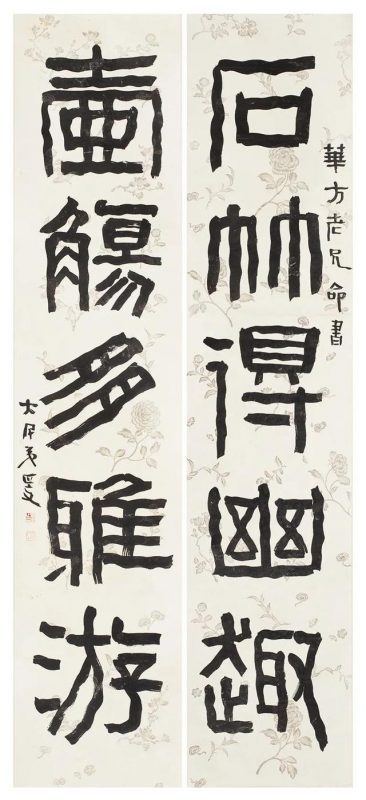 華方老兄命書
石林得幽趣
壺觴多雅游
大